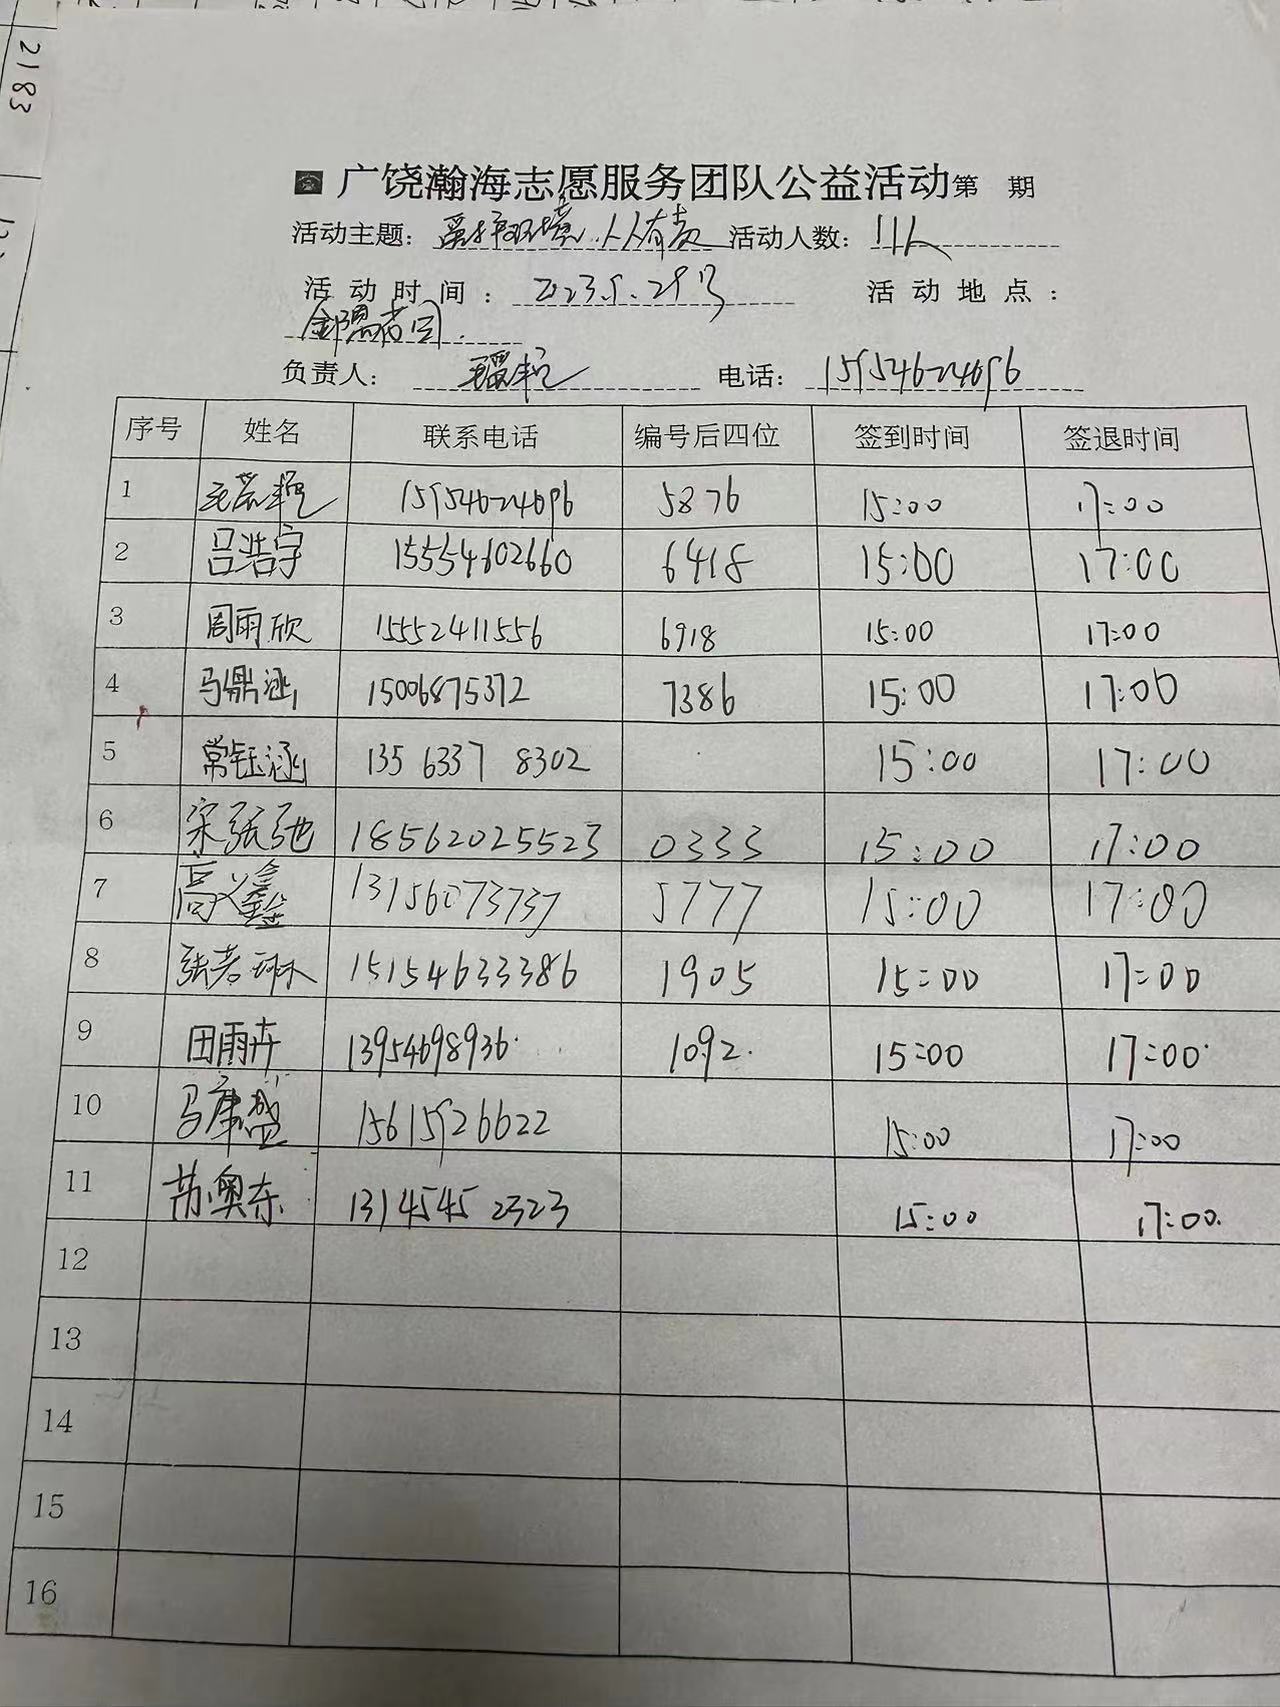 2183
广饶瀚海志愿服务团队公益活动第 期
活动主题: 爱护环境.人人有责 活动人数: 11人
活动时间: 2023.5.29号 活动地点:
负责人: 电话: 15954624096
序号 姓名 联系电话 编号后四位 签到时间 签退时间
1 15954624096 5876 15:00 17:00
2 吕浩宇 15554602660 6418 15:00 17:00
3 周雨欣 15552411556 6918 15:00 17:00
4 马鼎涵 15006875372 7386 15:00 17:00
5 常钰涵 135 6337 8302 15:00 17:00
6 宋张弛 18562025523 0333 15:00 17:00
7 高义鑫 13156073737 5777 15:00 17:00
8 张若琳 15154633386 1905 15:00 17:00
9 田雨卉 13954698936 1092. 15:00 17:00
10 马康盛 15615926622 15:00 17:00
11 苏奥东 1314545 2323 15:00 17:00.
12
13
14
15
16